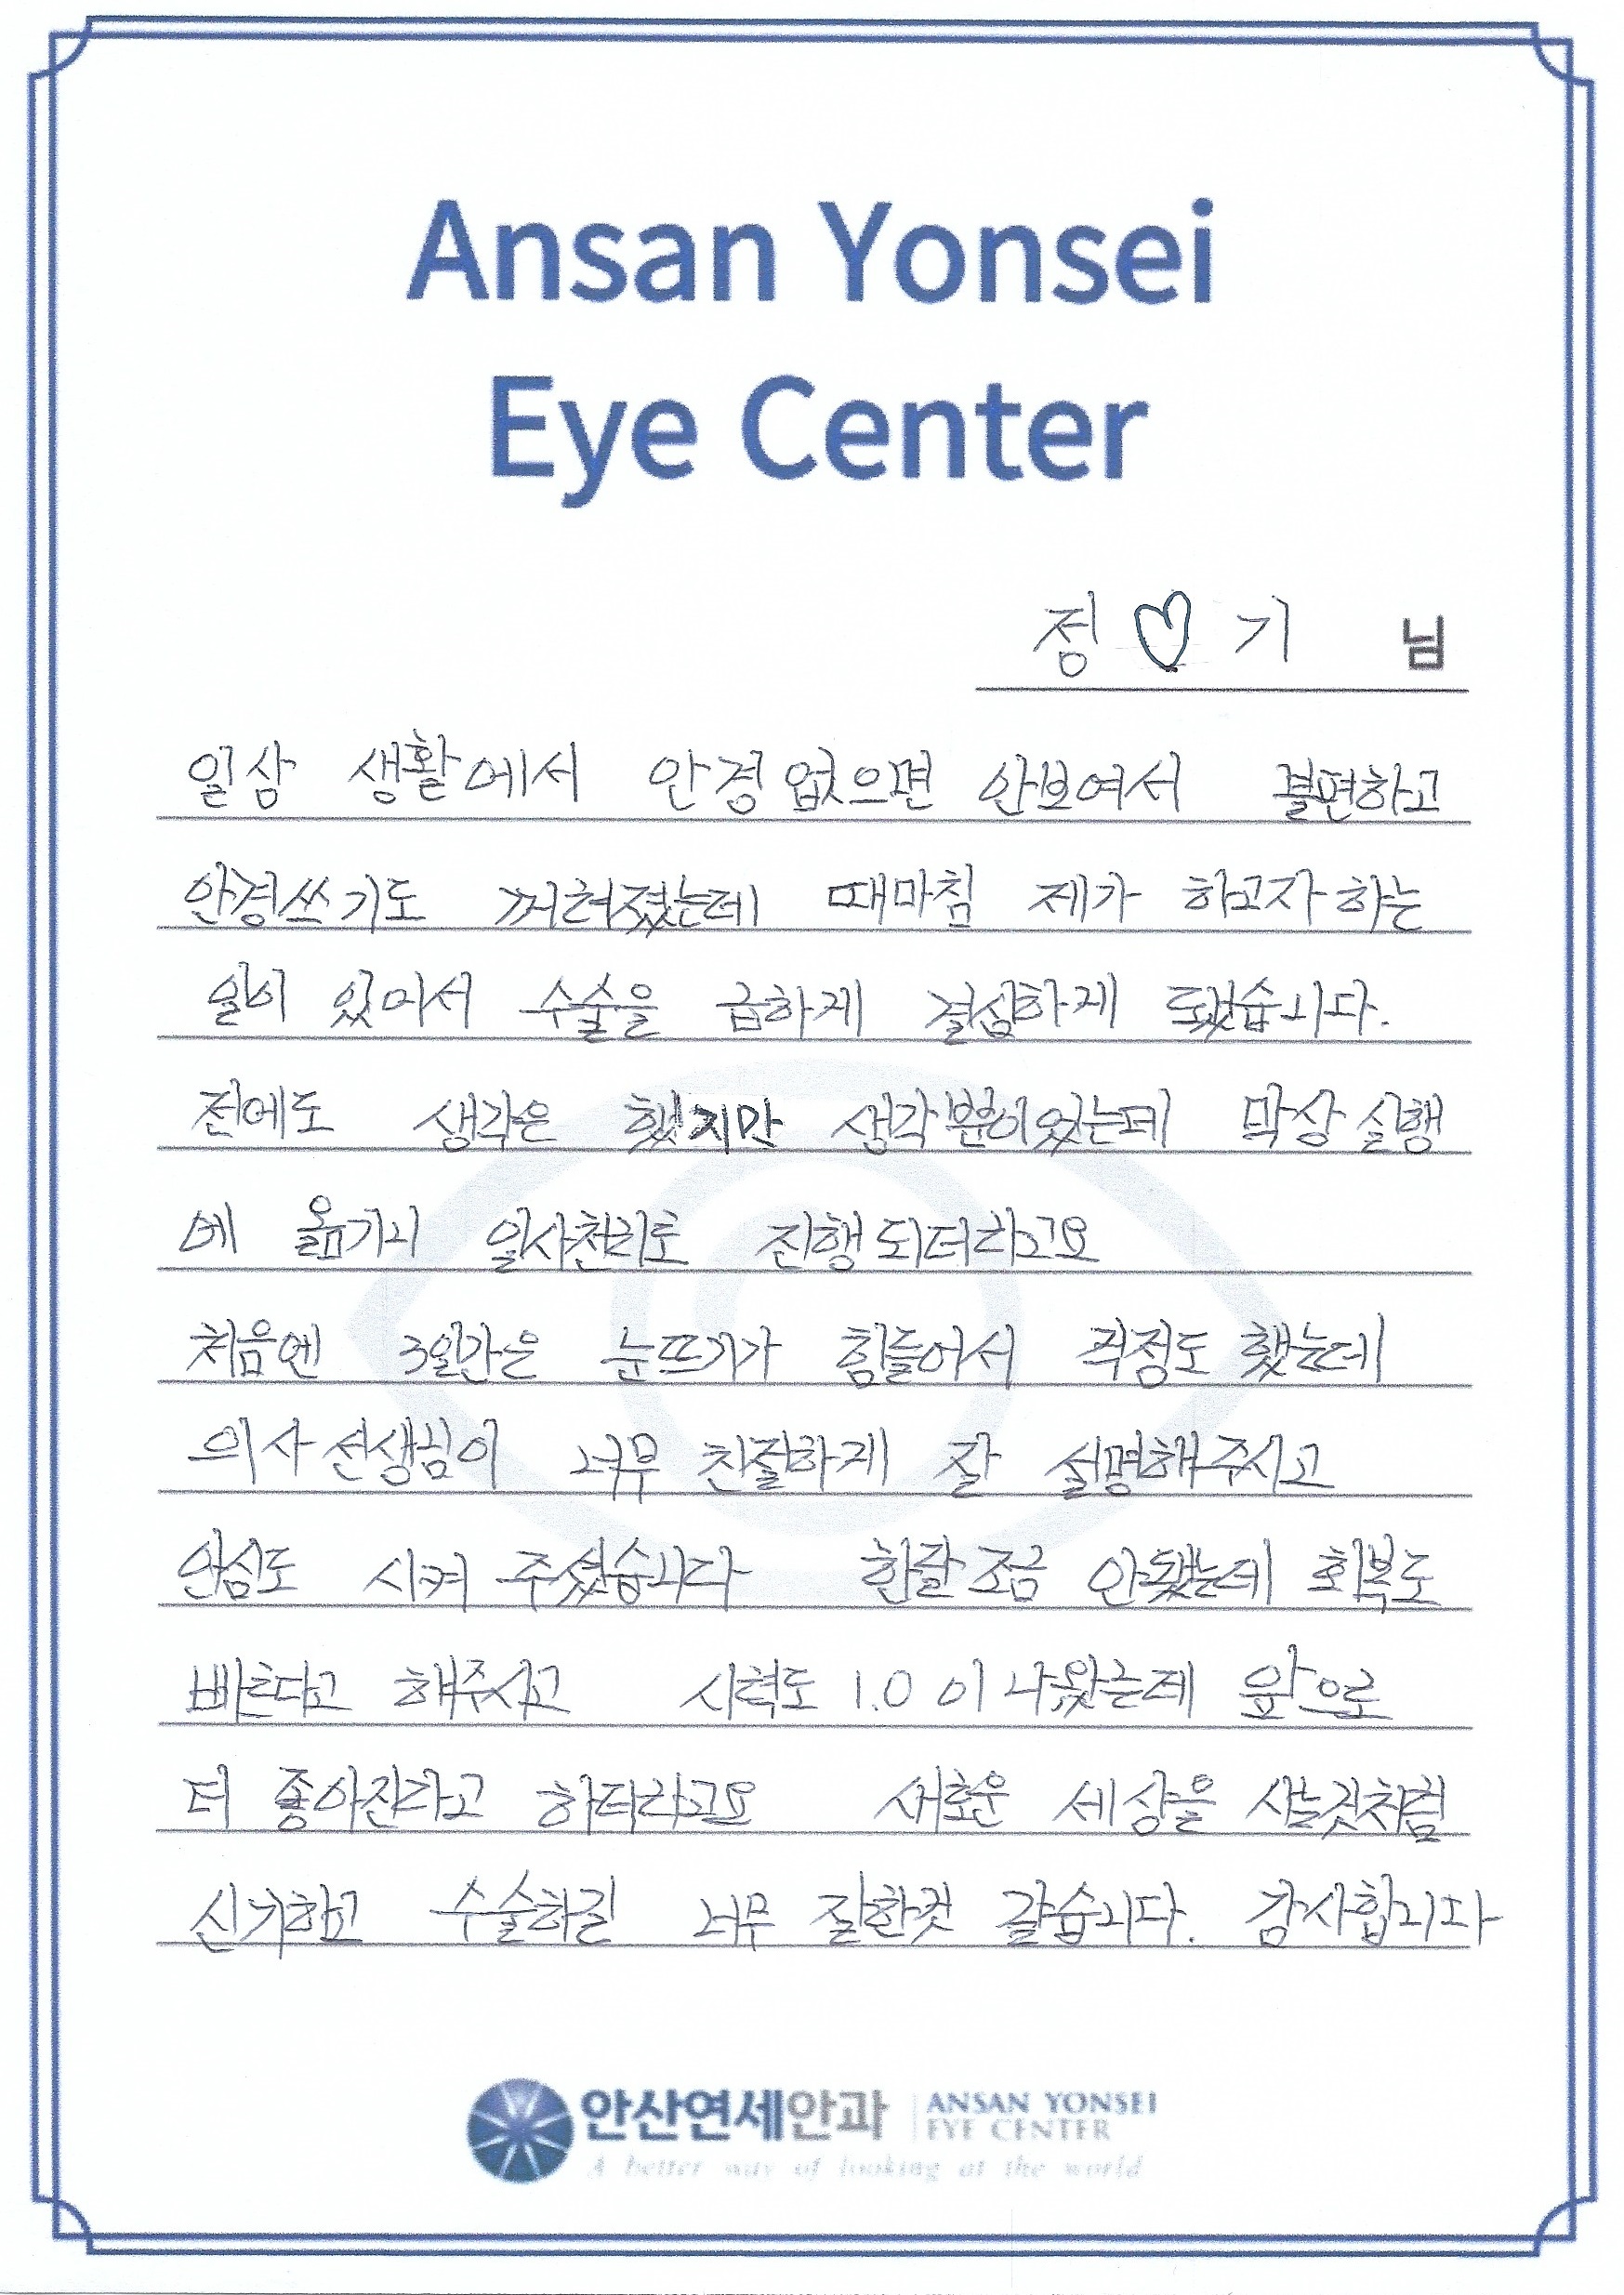 Ansan Yonsei
Eye Center
정♡기 님
일상 생활에서 안경 없으면 안보여서 불편하고
안경쓰기도 꺼려졌는데 때마침 제가 하고자 하는
일이 있어서 수술을 급하게 결심하게 됐습니다.
전에도 생각은 했지만 생각뿐이었는데 막상 실행
에 옮기니 일사천리로 진행되더라고요
처음엔 3일간은 눈뜨기가 힘들어서 걱정도 했는데
의사선생님이 너무 친절하게 잘 설명해주시고
안심도 시켜 주셨습니다 한달 조금 안됐는데 회복도
빠르다고 해주시고 시력도 1.0 이 나왔는데 앞으로
더 좋아진다고 하더라고요 새로운 세상을 사는것처럼
신기하고 수술하길 너무 잘한것 같습니다. 감사합니다
안산연세안과 ANSAN YONSEI
EYE CENTER
A better way of looking at the world